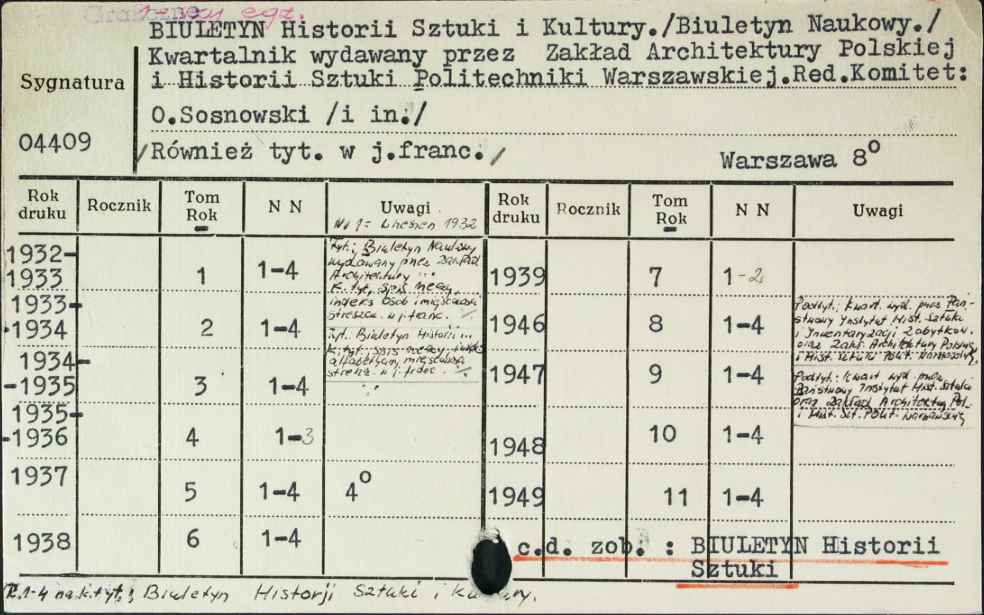 BIULETYN Historii Sztuki i Kultury./Biuletyn Naukowy./
Kwartalnik wydawany przez Zakład Architektury Polskiej
i Historii Sztuki Politechniki Warszawskiej.Red.Komitet:
Sygnatura
O.Sosnowski /i in./
04409
/Również tyt. w j.franc./
Warszawa 8°
Rok druku Rocznik Tom Rok N N Uwagi Rok druku Rocznik Tom Rok N N Uwagi
Nr 1 = Wrzesień 1932
1932-1933 1 1-4
Tyt.: Biuletyn Naukowy
wydawany przez Zakład
Architektury ...
K. tyt., spis rzeczy,
indeks osób i miejscowości
streszcz. w j. franc.
1933-1934 2 1-4
Tyt. Biuletyn Historii ...
K. tyt., spis rzeczy,
1934-1935 3 1-4
1935-1936 4 1-3
1937 5 1-4 4°
1938 6 1-4
1939 7 1-2
1946 8 1-4
Podtyt.: Kwart. wyd. przez Pań-
stwowy Instytut Hist. Sztuki
i Inwentaryzacji Zabytków
oraz Zakł. Architektury Polskiej
i Hist. Sztuki Polit. Warszawskiej
1947 9 1-4
Podtyt.: Kwart. wyd. przez
Państwowy Instytut Hist. Sztuki
oraz Zakład Architektury Pol.
i Hist. Szt. Polit. Warszawskiej
1948 10 1-4
1949 11 1-4
c.d. zob. : BIULETYN Historii
Sztuki
R. 1-4 na k. tyt.: Biuletyn Historji Sztuki i Kultury.